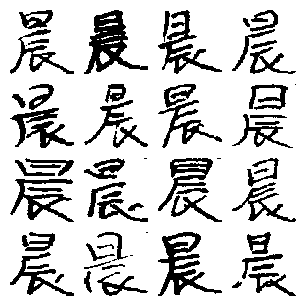 晨晨晨晨
晨晨晨晨
晨晨晨晨
晨晨晨晨